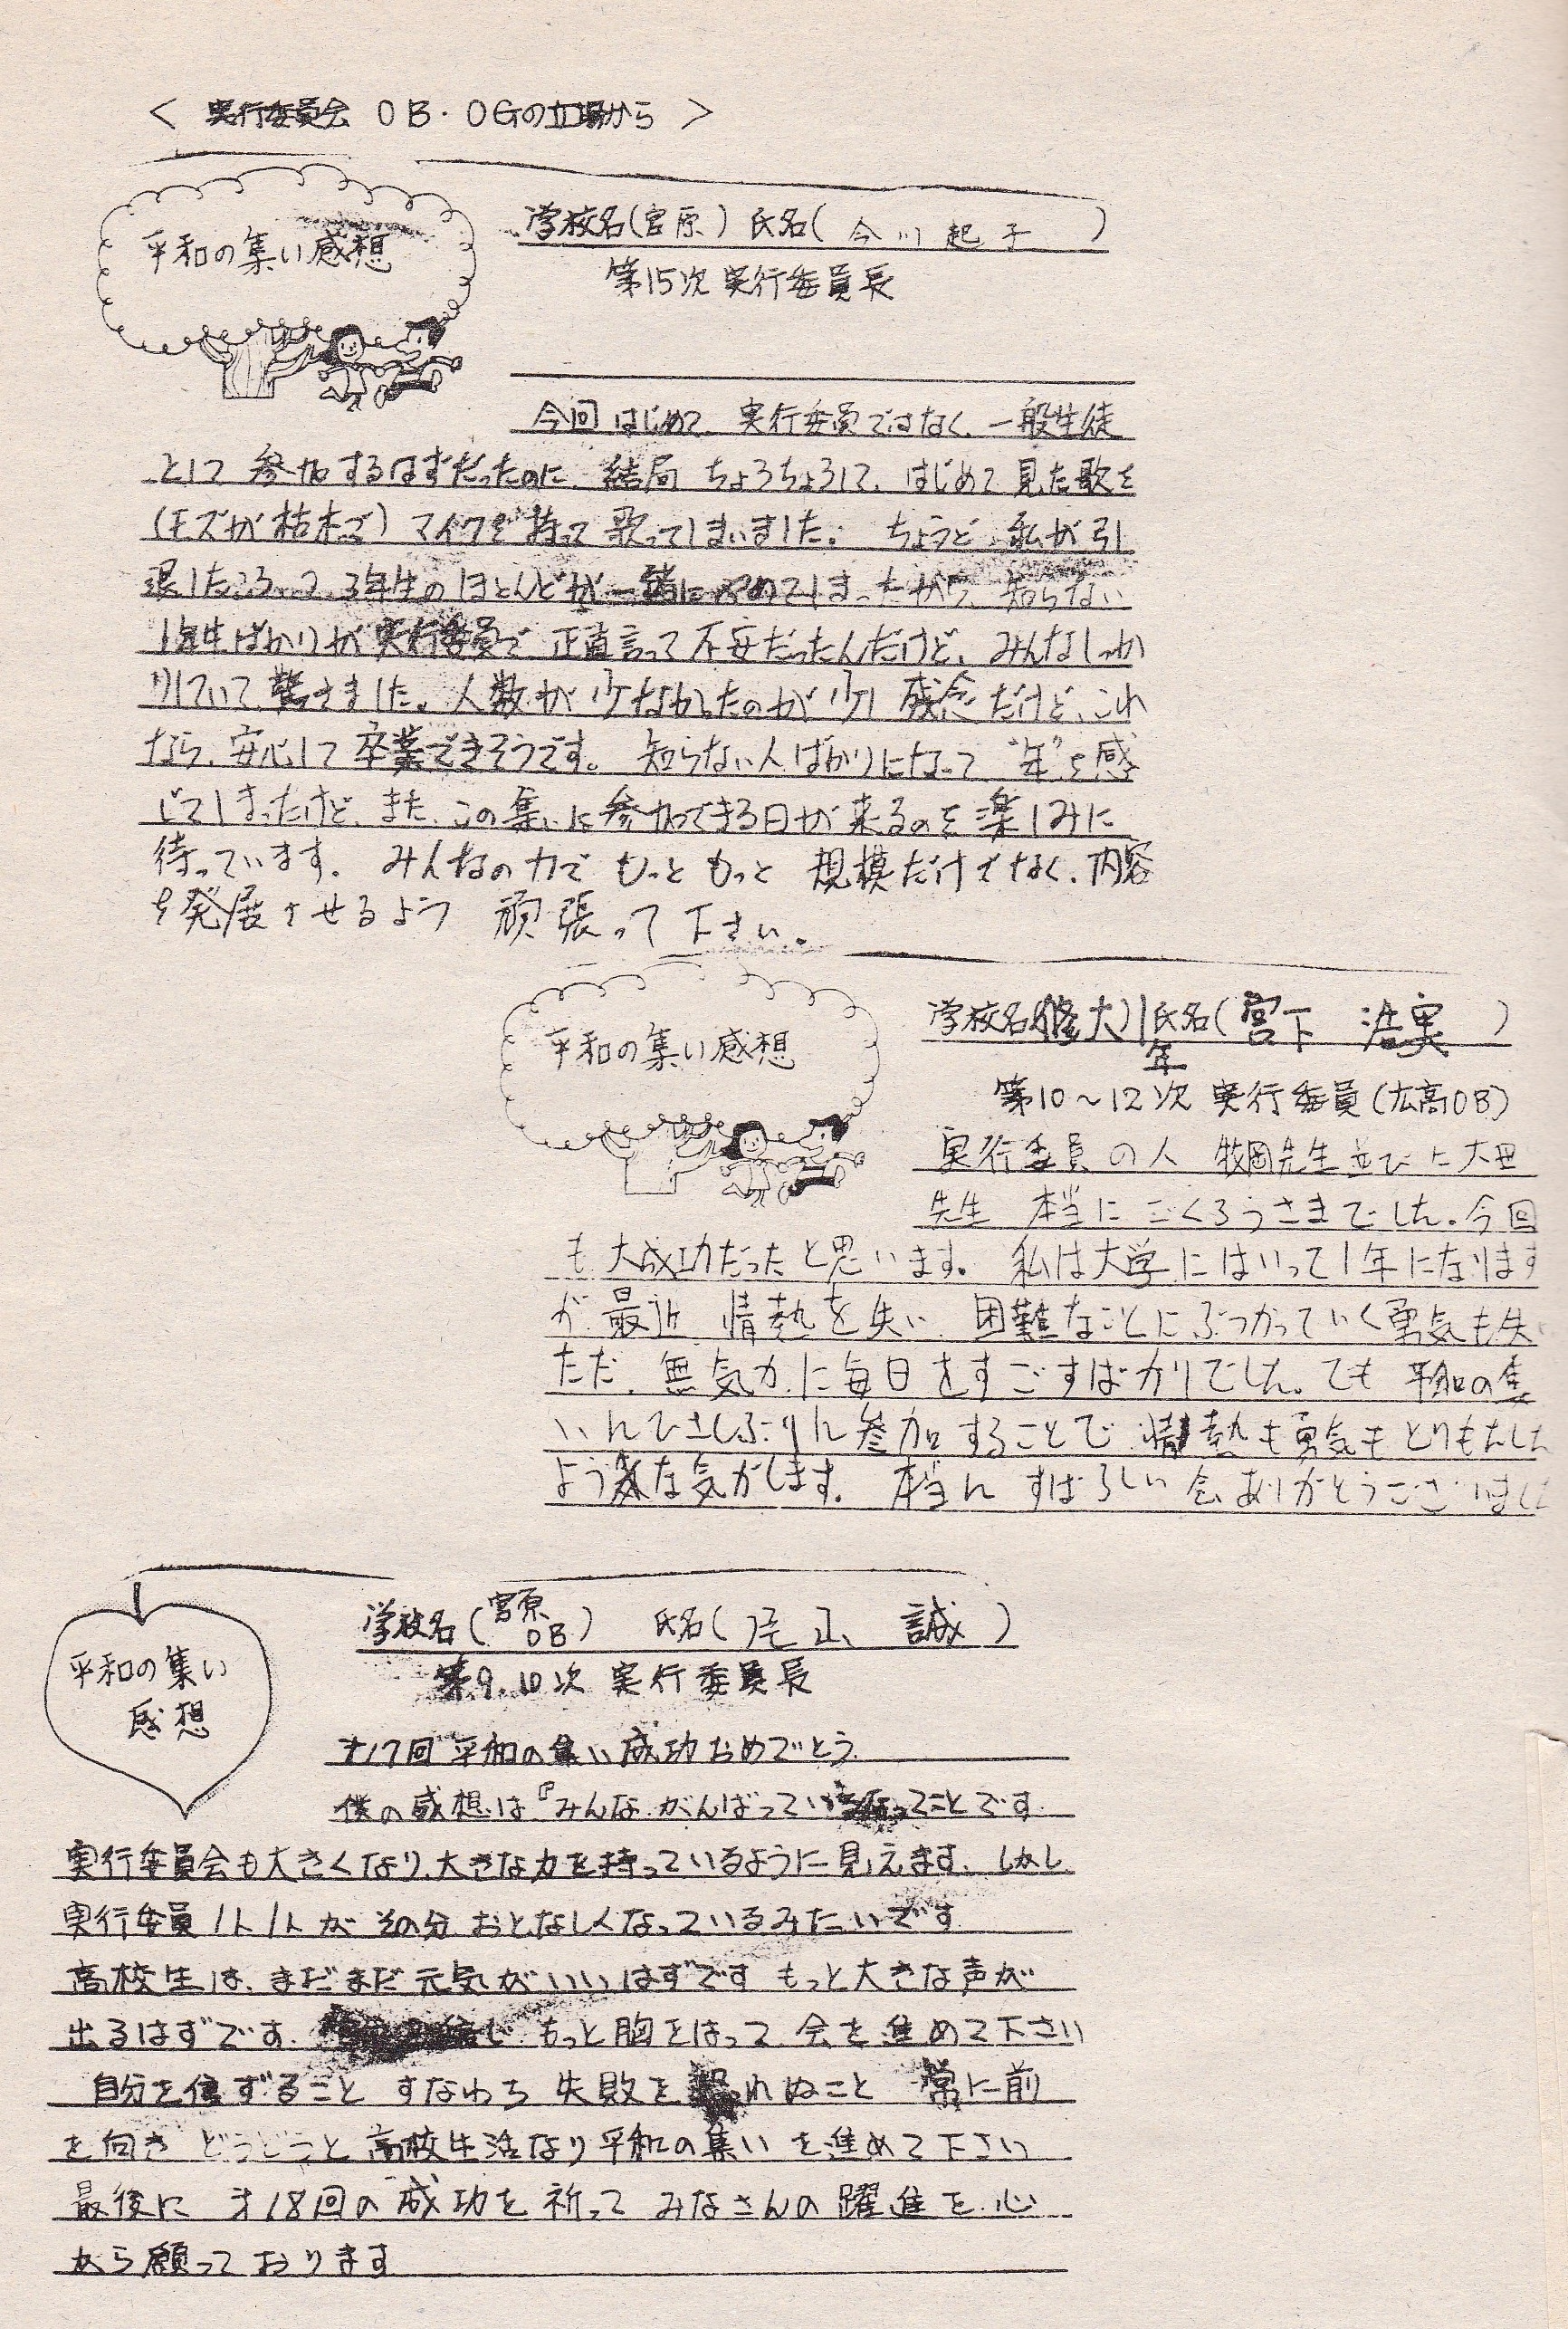 < 実行委員会 OB・OGの立場から >
平和の集い感想
学校名(宮原) 氏名( 今川 起子 )
第15次 実行委員長
今回 はじめて、実行委員ではなく、一般生徒
として 参加するはずだったのに、結局 ちょろちょろして、はじめて見た歌を
(モズが枯木で) マイクを持って 歌ってしまいました。 ちょうど 私が引
退したころ、2、3年生のほとんどが一緒にやめてしまったから、知らない
1年生ばかりが実行委員で 正直言って不安だったんだけど、みんなしっか
りしていて驚きました。人数が少なかったのが少し 残念だけど、これ
なら、安心して卒業できそうです。 知らない人ばかりになって "年"を感
じてしまったけど、また、この集いに参加できる日が来るのを楽しみに
待っています。 みんなの力で もっと もっと 規模だけでなく、内容
を発展させるよう 頑張って下さい。
平和の集い感想
学校名(修大)1年 氏名(宮下 浩実 )
第10～12次 実行委員(広高OB)
実行委員の人 牧岡先生並びに大田
先生 本当に ごくろうさまでした。今回
も大成功だったと思います。 私は大学にはいって1年になります
が、最近 情熱を失い、困難なことにぶつかっていく勇気も失い
ただ、無気力に毎日をすごすばかりでした。でも 平和の集
いにひさしぶりに参加することで 情熱も勇気もとりもどした
ような気がします。 本当に すばらしい 会 ありがとうございました
平和の集い
感想
学校名(宮原OB) 氏名(尾山 誠 )
第9.10次 実行委員長
才17回 平和の集い成功おめでとう
僕の感想は『みんな がんばってい ってことです
実行委員会も大きくなり、大きな力を持っているように見えます。しかし
実行委員1人1人が その分 おとなしくなっているみたいです
高校生は、まだまだ元気がいいはずです もっと大きな声が
出るはずです。 もっと胸をはって 会を進めて下さい
自分を信ずること すなわち 失敗を恐れぬこと 常に前
を向き どうどうと 高校生活なり平和の集いを進めて下さい
最後に 才18回の成功を祈って みなさんの躍進を 心
から願っております